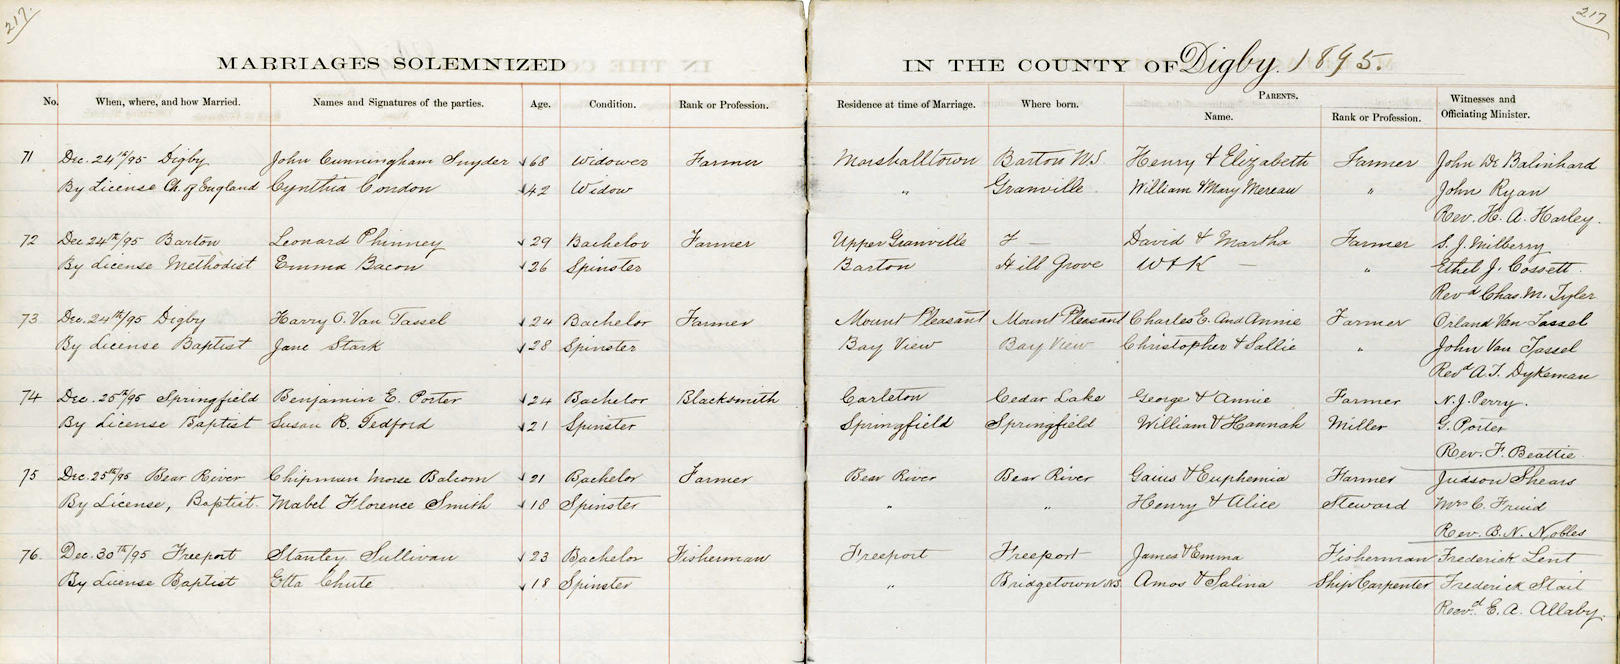 217.
217
MARRIAGES SOLEMNIZED IN THE COUNTY OF Digby. 1895.
No. When, where, and how Married. Names and Signatures of the parties. Age. Condition. Rank or Profession. Residence at time of Marriage. Where born. PARENTS. Name. Rank or Profession. Witnesses and Officiating Minister.
71 Dec. 24th/95 Digby. John Cunningham Snyder 68 Widower Farmer Marshalltown Barton N.S. Henry & Elizabeth Farmer John De Balinhard
By License Ch. of England Cynthia Condon 42 Widow " Granville William & Mary Mereau " John Ryan
Rev. H. A. Harley.
72 Dec 24th/95 Barton Leonard Phinney 29 Bachelor Farmer Upper Granville F — David & Martha Farmer S. J. Milberry
By License Methodist Emma Bacon 26 Spinster Barton Hill Grove W & K — " Ethel J. Cossett.
Revd Chas. M. Tyler
73 Dec. 24th/95 Digby Harry O. Van Tassel 24 Bachelor Farmer Mount Pleasant Mount Pleasant Charles E. and Annie Farmer Orland Van Tassel
By License Baptist Jane Stark 28 Spinster Bay View Bay View Christopher & Sallie " John Van Tassel
Revd A. T. Dykeman
74 Dec. 25th/95 Springfield Benjamin E. Porter 24 Bachelor Blacksmith Carleton Cedar Lake George & Annie Farmer N. J. Perry.
By License Baptist Susan B. Tedford 21 Spinster Springfield Springfield William & Hannah Miller G. Porter
Rev. F. Beattie
75 Dec. 25th/95 Bear River Chipman Morse Balcom 21 Bachelor Farmer Bear River Bear River Gaius & Euphemia Farmer Judson Shears
By License, Baptist. Mabel Florence Smith 18 Spinster " " Henry & Alice Steward Mrs C.
Rev. B. N. Nobles
76. Dec. 30th/95 Freeport Stanley Sullivan 23 Bachelor Fisherman Freeport Freeport James & Emma Fisherman Frederick Lent
By License Baptist Etta Chute 18 Spinster " Bridgetown N.S. Amos & Salina Ship Carpenter Frederick Stait
Revd. E. A. Allaby.